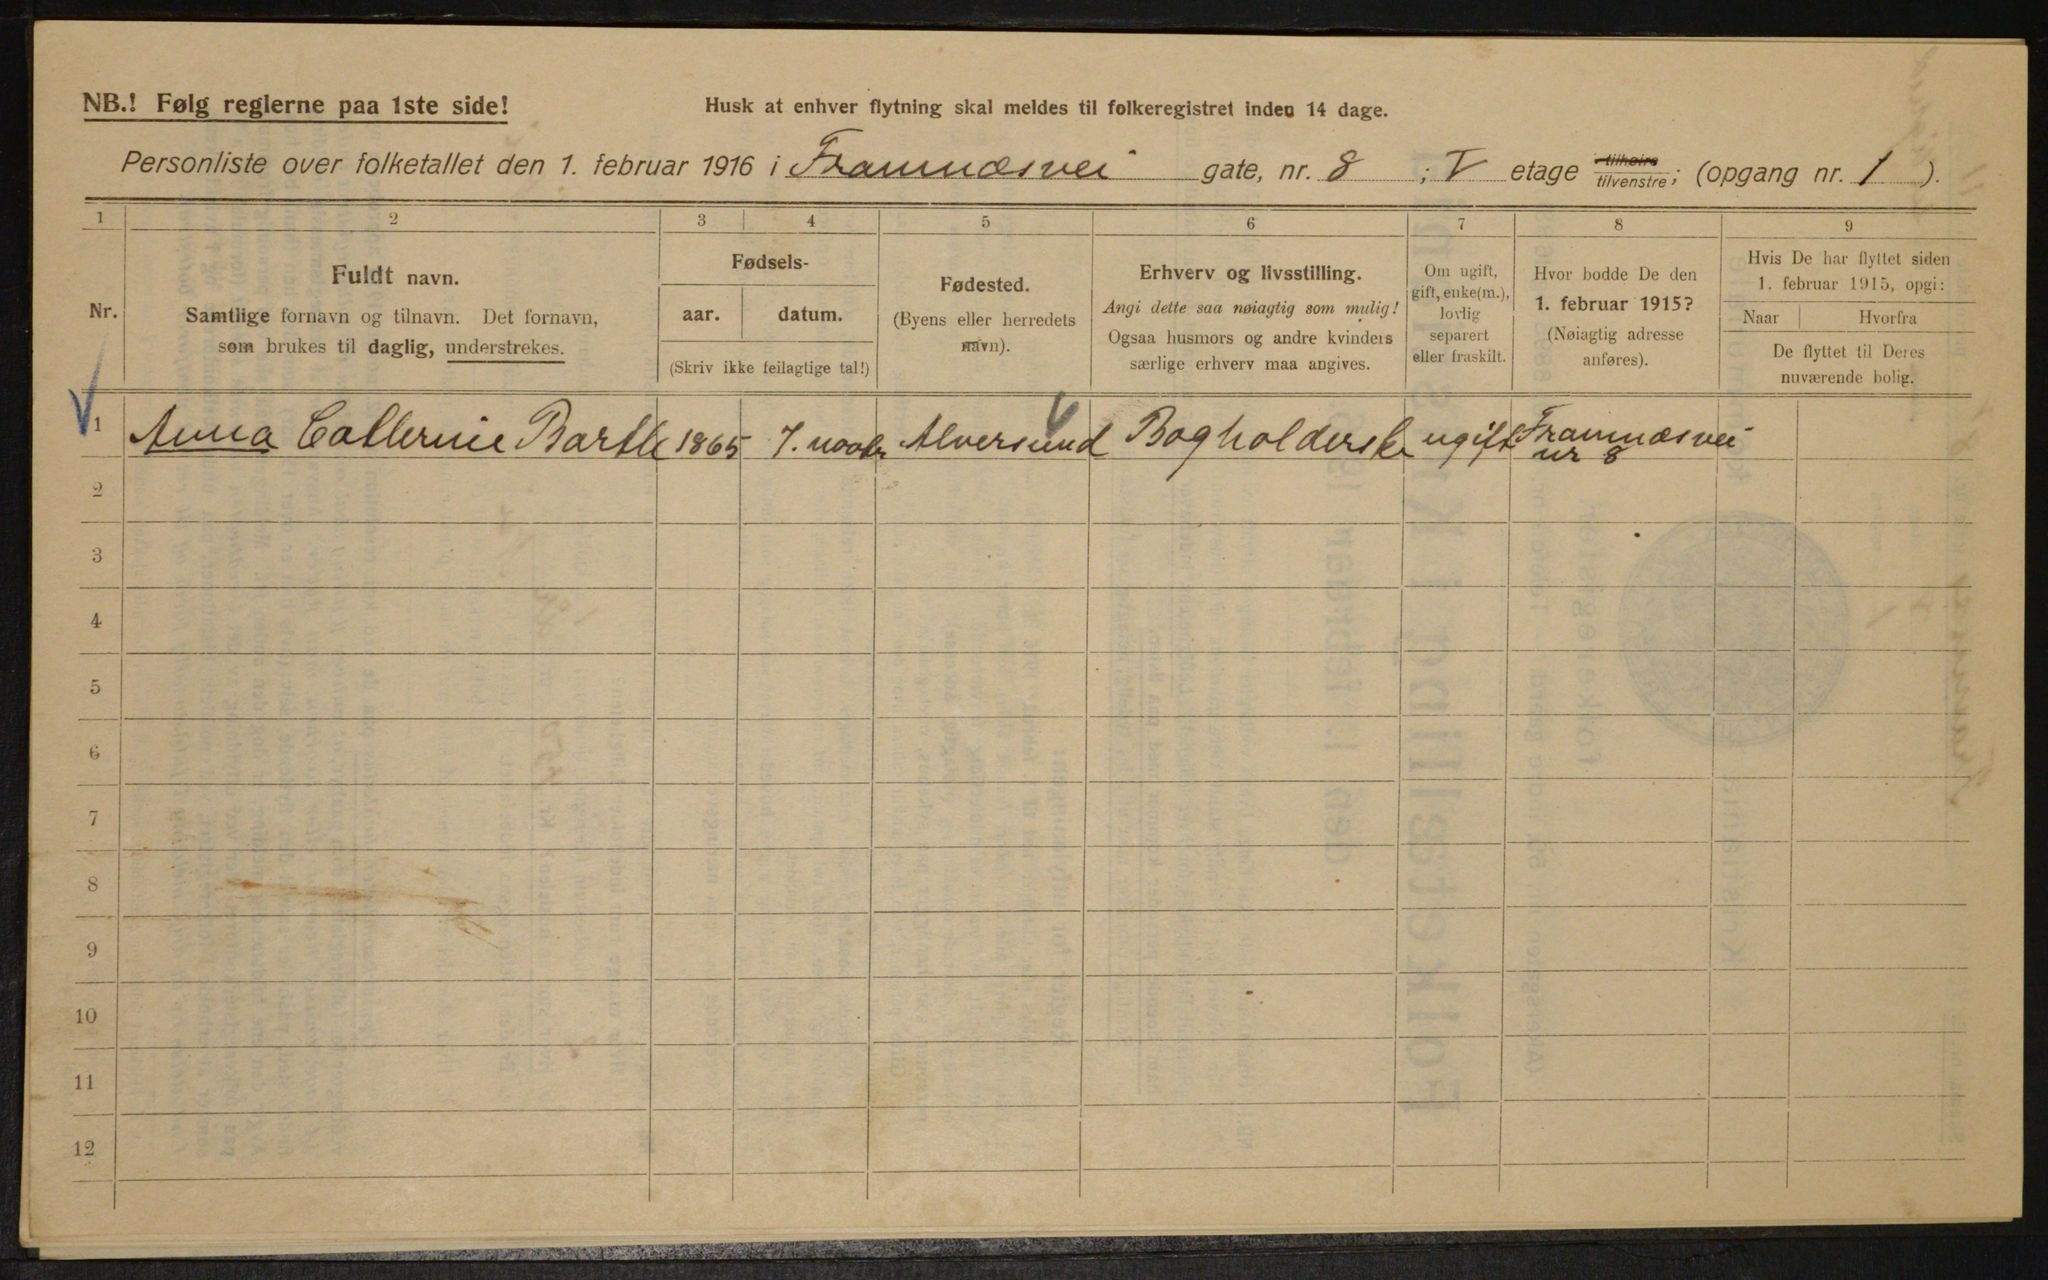 NB.! Følg reglerne paa 1ste side!
Husk at enhver flytning skal meldes til folkeregistret inden 14 dage.
Personliste over folketallet den 1. februar 1916 i Framnæsvei gate, nr. 8 ; V etage tilhøire tilvenstre; (opgang nr. 1 ).
1 2 3 4 5 6 7 8 9
Nr.
Fuldt navn.
Samtlige fornavn og tilnavn. Det fornavn,
som brukes til daglig, understrekes.
Fødsels-
aar. datum.
(Skriv ikke feilagtige tal!)
Fødested.
(Byens eller herredets
navn).
Erhverv og livsstilling.
Angi dette saa nøiagtig som mulig!
Ogsaa husmors og andre kvinders
særlige erhverv maa angives.
Om ugift,
gift, enke(m.),
lovlig
separert
eller fraskilt.
Hvor bodde De den
1. februar 1915?
(Nøiagtig adresse
anføres).
Hvis De har flyttet siden
1. februar 1915, opgi:
Naar Hvorfra
De flyttet til Deres
nuværende bolig.
1 Anna Bartle 1865 7. Alversund Bogholderske ugift Framnæsvei
nr 8
2
3
4
5
6
7
8
9
10
11
12